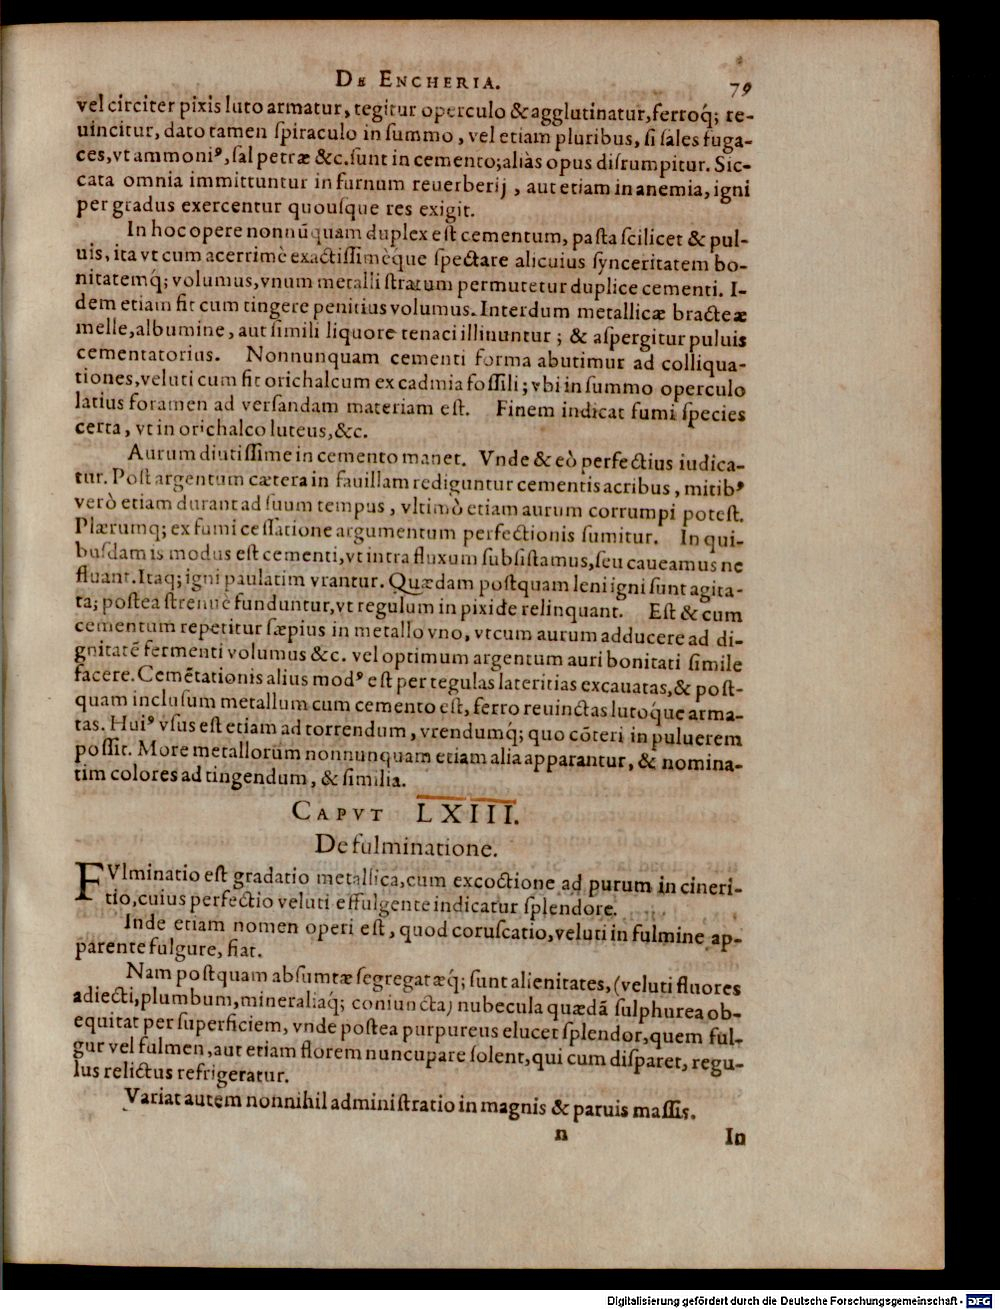 De Encheria. 79
vel circiter pixis luto armatur, tegitur operculo & agglutinatur, ferroq́; re-
uincitur, dato tamen ſpiraculo in ſummo, vel etiam pluribus, ſi ſales fuga-
ces, vt ammoniꝰ, ſal petræ &c. ſunt in cemento; aliàs opus diſrumpitur. Sic-
cata omnia immittuntur in furnum reuerberij, aut etiam in anemia, igni
per gradus exercentur quouſque res exigit.
In hoc opere nonnūquam duplex eſt cementum, paſta ſcilicet & pul-
uis, ita vt cum acerrimè exactiſſimèque ſpectare alicuius ſynceritatem bo-
nitatemq́; volumus, vnum metalli ſtratum permutetur duplice cementi. I-
dem etiam fit cum tingere penitius volumus. Interdum metallicæ bracteæ
melle, albumine, aut ſimili liquore tenaci illinuntur; & aſpergitur puluis
cementatorius. Nonnunquam cementi forma abutimur ad colliqua-
tiones, veluti cum fit orichalcum ex cadmia foſſili; vbi in ſummo operculo
latius foramen ad verſandam materiam eſt. Finem indicat fumi ſpecies
certa, vt in orichalco luteus, &c.
Aurum diutiſſime in cemento manet. Vnde & eò perfectius iudica-
tur. Poſt argentum cætera in fauillam rediguntur cementis acribus, mitibꝰ
verò etiam durant ad ſuum tempus, vltimò etiam aurum corrumpi poteſt.
Plærumq; ex fumi ceſſatione argumentum perfectionis ſumitur. In qui-
buſdam is modus eſt cementi, vt intra fluxum ſubſiſtamus, ſeu caueamus ne
fluant. Itaq; igni paulatim vrantur. Quædam poſtquam leni igni ſunt agita-
ta; poſtea ſtrenuè funduntur, vt regulum in pixide relinquant. Eſt & cum
cementum repetitur ſæpius in metallo vno, vt cum aurum adducere ad di-
gnitatē fermenti volumus &c. vel optimum argentum auri bonitati ſimile
facere. Cemētationis alius modꝰ eſt per tegulas lateritias excauatas, & poſt-
quam incluſum metallum cum cemento eſt, ferro reuinctas lutoq́ue arma-
tas. Huiꝰ vſus eſt etiam ad torrendum, vrendumq́; quo cōteri in puluerem
poſſit. More metallorum nonnunquam etiam alia apparantur, & nomina-
tim colores ad tingendum, & ſimilia.
Capvt LXIII.
De fulminatione.
FVlminatio eſt gradatio metallica, cum excoctione ad purum in cineri-
tio, cuius perfectio veluti effulgente indicatur ſplendore.
Inde etiam nomen operi eſt, quod coruſcatio, veluti in fulmine ap-
parente fulgure, fiat.
Nam poſtquam abſumtæ ſegregatæq́; ſunt alienitates, (veluti fluores
adiecti, plumbum, mineraliaq́; coniuncta) nubecula quædā ſulphurea ob-
equitat per ſuperficiem, vnde poſtea purpureus elucet ſplendor, quem ful-
gur vel fulmen, aut etiam florem nuncupare ſolent, qui cum diſparet, regu-
lus relictus refrigeratur.
Variat autem nonnihil adminiſtratio in magnis & paruis maſſis.
n In
Digitalisierung gefördert durch die Deutsche Forschungsgemeinschaft - DFG